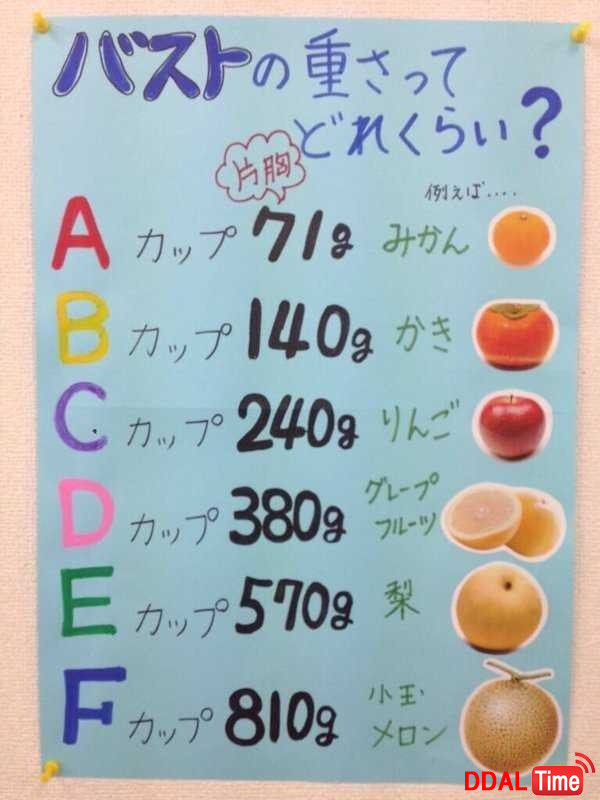 バストの重さって
どれくらい？
片胸
例えば....
Aカップ 71g みかん
Bカップ 140g かき
Cカップ 240g りんご
Dカップ 380g グレープ
フルーツ
Eカップ 570g 梨
Fカップ 810g 小玉
メロン
DDAL Time